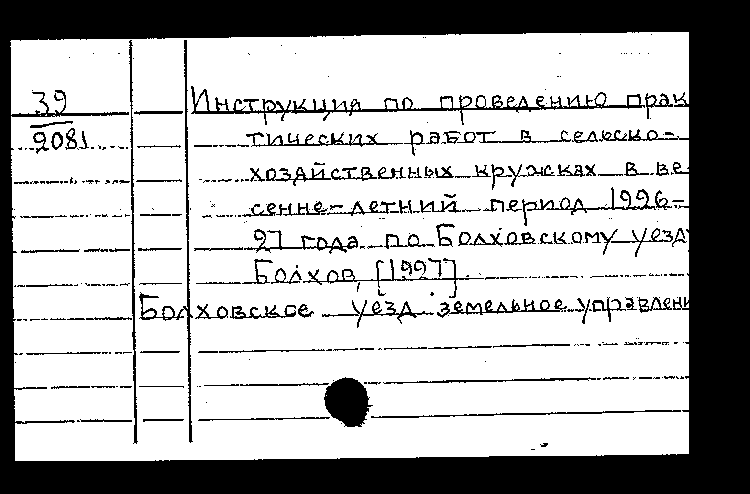 39
2081
Инструкция по проведению прак
тических работ в сельско-
хозяйственных кружках в ве
сенне-летний период 1926-
27 года по Болховскому уезду
Болхов, [1927].
Болховское уезд. земельное управлени